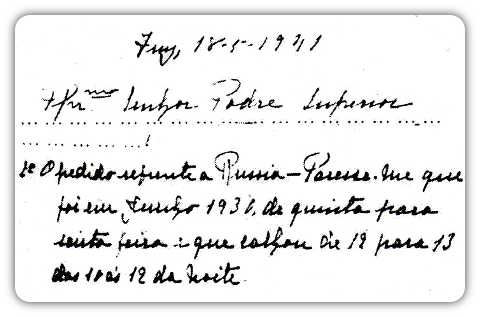 Tuy, 18-5-1941
Senhor Padre Superior
.......................................................
................!
O pedido referente a Russia - Parece-me que
foi em Junho 1930, de quinta para
sexta feira e que calhou de 12 para 13
das 10 às 12 da noite.